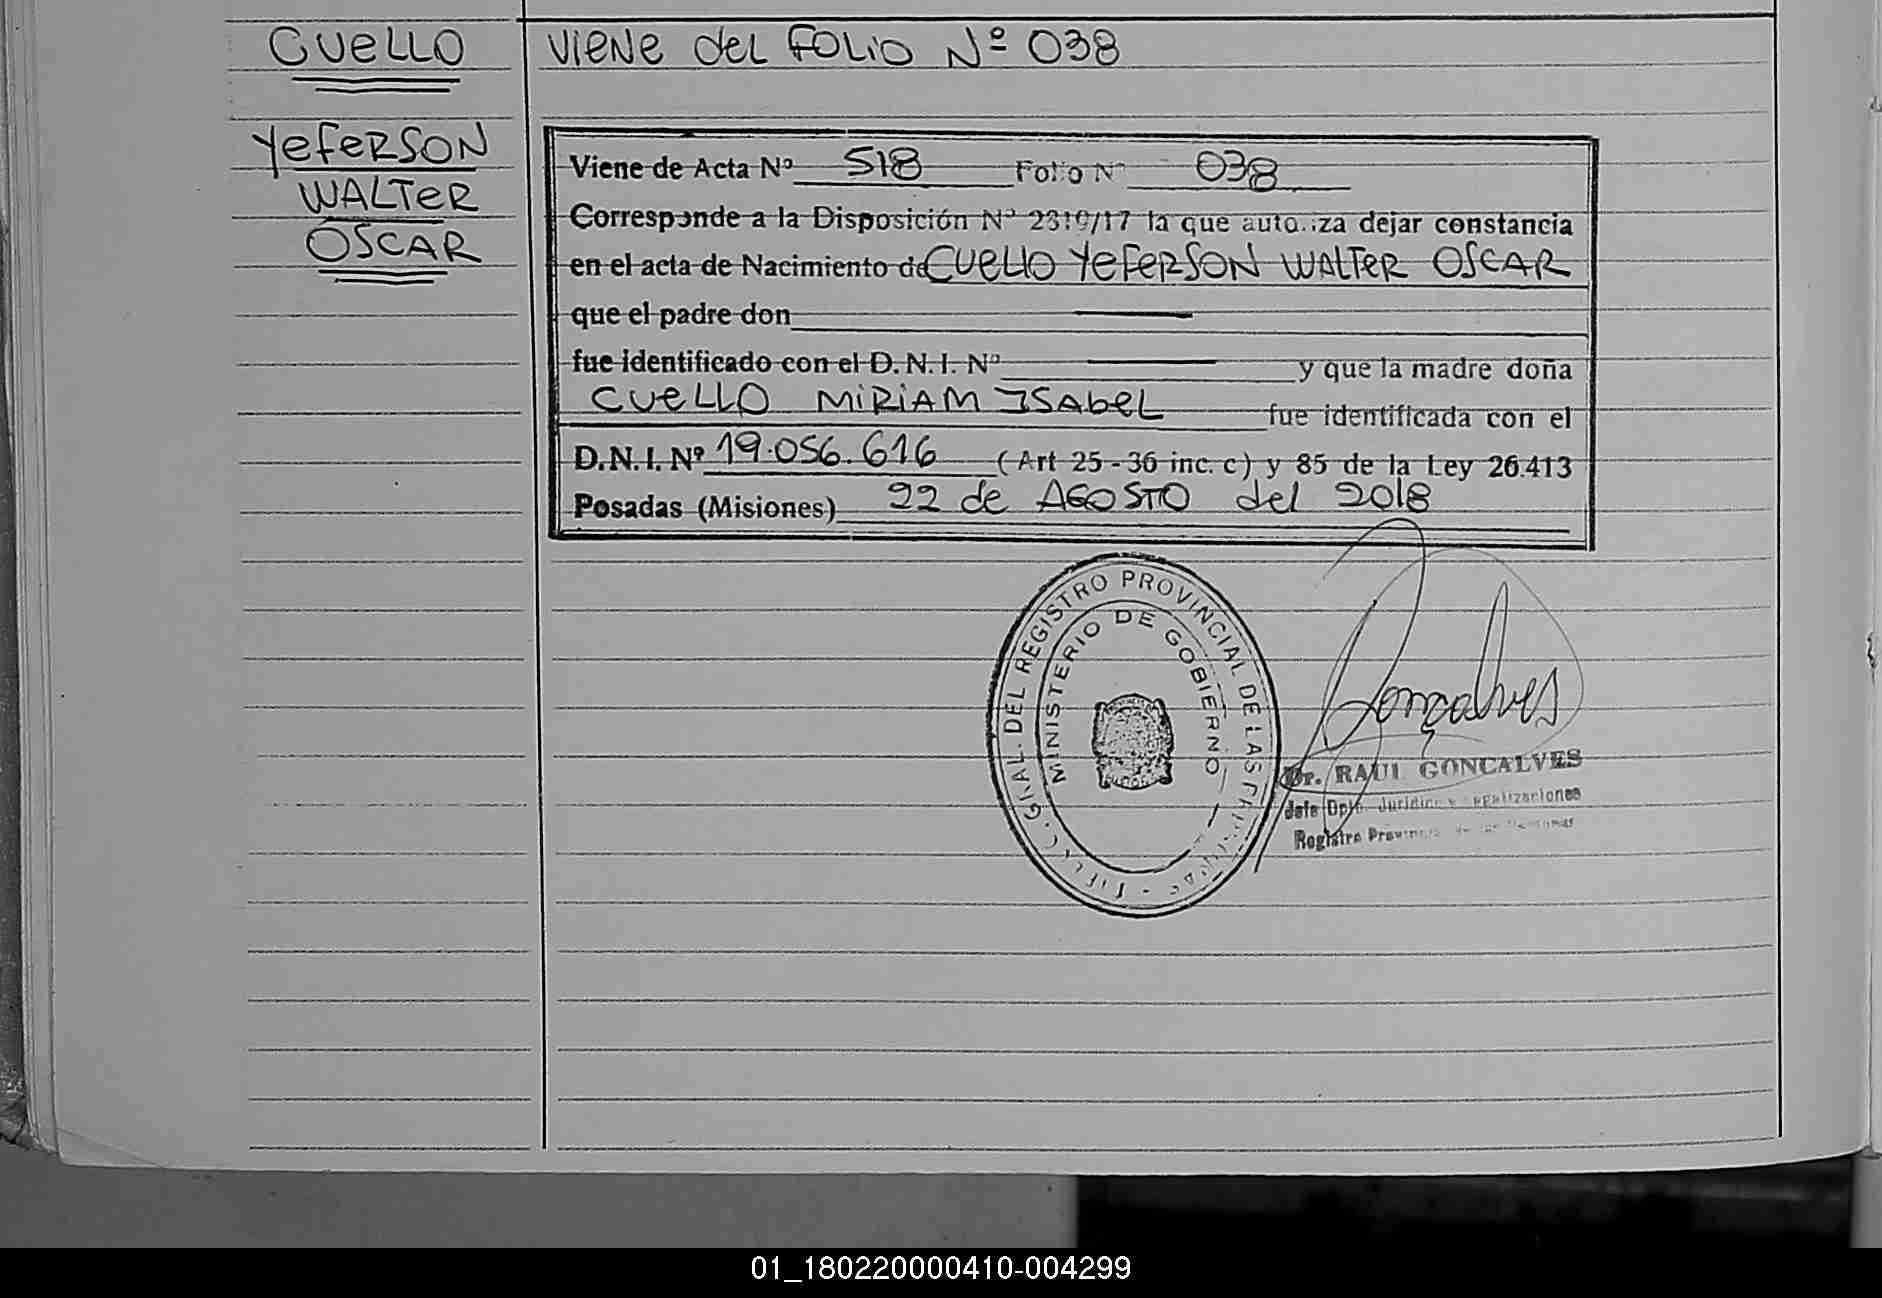 CUELLO
VIENE DEL FOLIO Nº 038
YEFERSON
WALTER
OSCAR
Viene de Acta Nº 518 Folio Nº 038
Corresponde a la Disposición Nº 2319/17 la que autoriza dejar constancia
en el acta de Nacimiento de CUELLO YEFERSON WALTER OSCAR
que el padre don
fue identificado con el D. N. I. Nº y que la madre doña
CUELLO MIRIAM ISABEL fue identificada con el
D.N.I. Nº 19.056.616 (Art 25-36 inc. c) y 85 de la Ley 26.413
Posadas (Misiones) 22 de AGOSTO del 2018
GRAL. DEL REGISTRO PROVINCIAL DE LAS
MINISTERIO DE GOBIERNO
Gonçalves
Dr. RAUL GONCALVES
Jefe Dpto. Jurídico y Legalizaciones
Registro
01_180220000410-004299